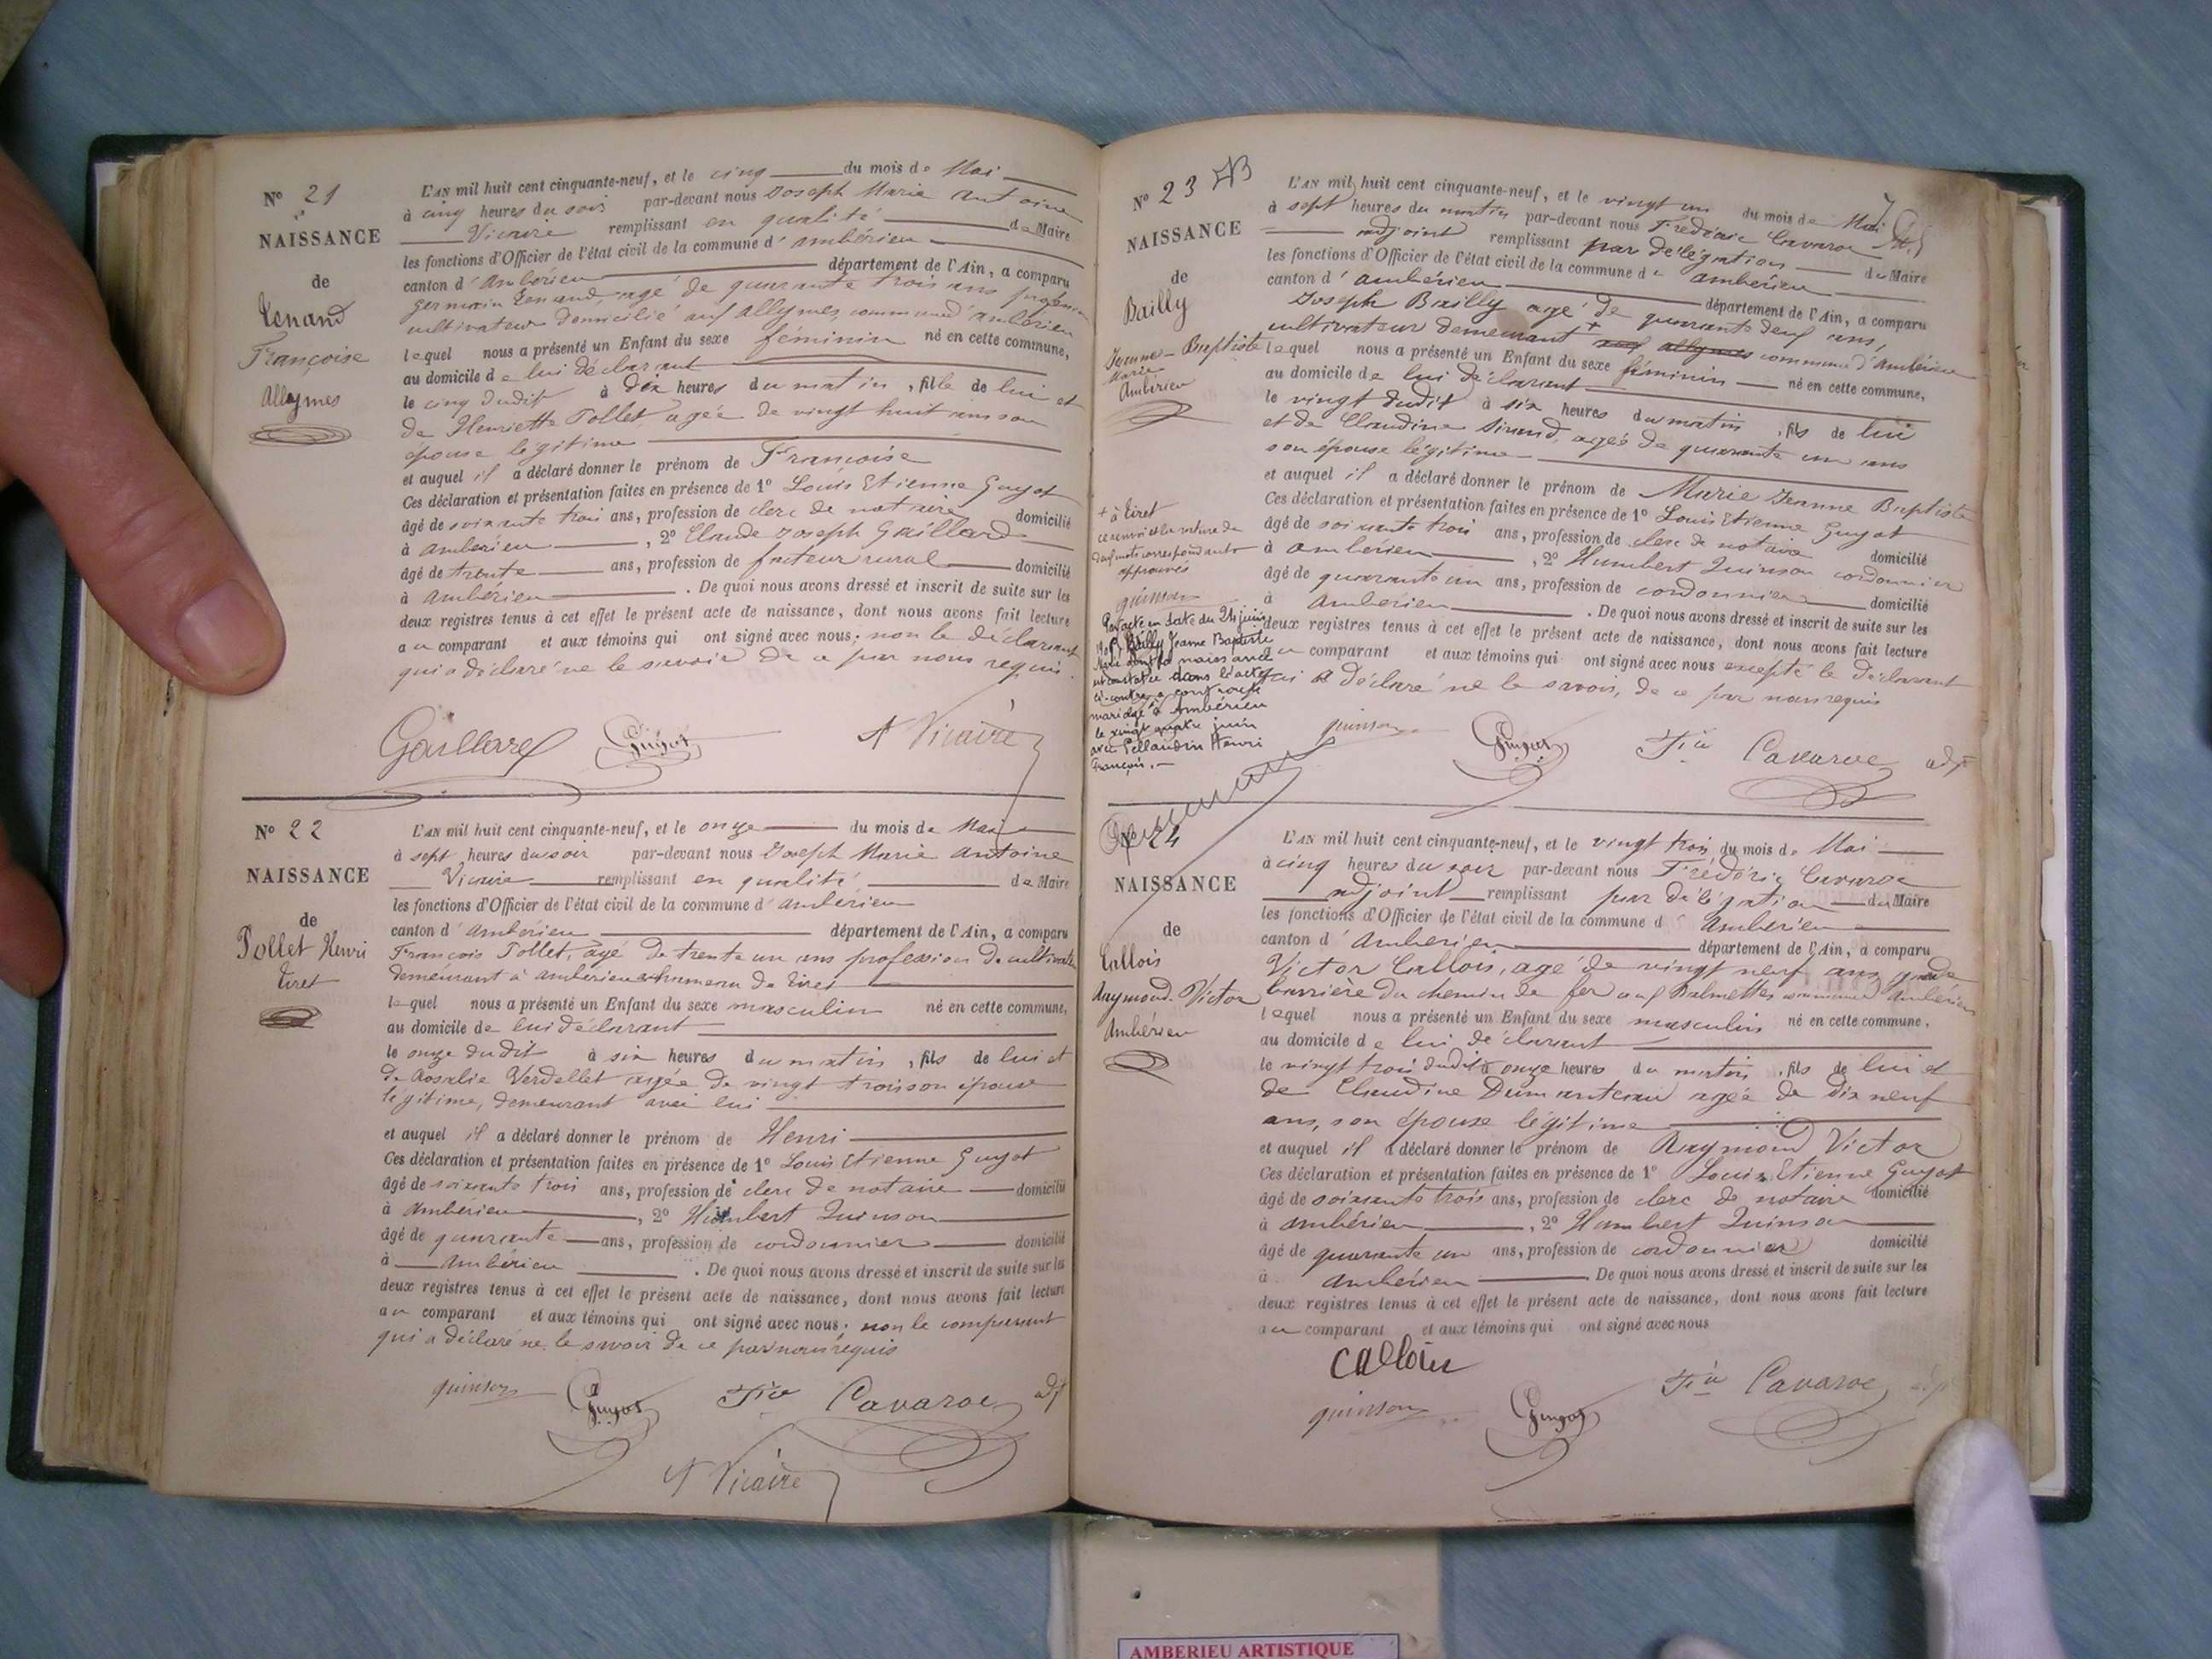 N° 21
NAISSANCE
de
Tenand
Françoise
Allymes
L'AN mil huit cent cinquante-neuf, et le cinq du mois de Mai
à cinq heures du soir par-devant nous Joseph Marie Antoine
Vicaire remplissant en qualité de Maire
les fonctions d'Officier de l'état civil de la commune d'ambérieu
canton d'Ambérieu département de l'Ain, a comparu
germain Tenand, agé de quarante trois ans
cultivateur domicilié aux allymes, commune d'ambérieu
lequel nous a présenté un Enfant du sexe féminin né en cette commune,
au domicile de lui déclarant
le cinq dudit à dix heures du matin, fille de lui et
de Henriette Tollet, agée de vingt huit ans son
épouse légitime
et auquel il a déclaré donner le prénom de Françoise
Ces déclaration et présentation faites en présence de 1° Louis Etienne Guyot
âgé de soixante trois ans, profession de clerc de notaire domicilié
à ambérieu, 2° Claude Joseph Gaillard
âgé de trente ans, profession de facteur rural domicilié
à ambérieu. De quoi nous avons dressé et inscrit de suite sur les
deux registres tenus à cet effet le présent acte de naissance, dont nous avons fait lecture
au comparant et aux témoins qui ont signé avec nous; non le déclarant
qui a déclaré ne le savoir de ce par nous requis.
Gaillard Guyot A Vicaire
N° 22
NAISSANCE
de
Pollet Henri
Tiret
L'AN mil huit cent cinquante-neuf, et le onze du mois de Mai
à sept heures du soir par-devant nous Joseph Marie Antoine
Vicaire remplissant en qualité de Maire
les fonctions d'Officier de l'état civil de la commune d'ambérieu
canton d'ambérieu département de l'Ain, a comparu
François Pollet, agé de trente un ans profession de cultivateur
demeurant à ambérieu hameau de Tiret
lequel nous a présenté un Enfant du sexe masculin né en cette commune,
au domicile de lui déclarant
le onze dudit à six heures du matin, fils de lui et
de Rosalie Verdellet agée de vingt trois son épouse
légitime, demeurant avec lui
et auquel il a déclaré donner le prénom de Henri
Ces déclaration et présentation faites en présence de 1° Louis Etienne Guyot
âgé de soixante trois ans, profession de clerc de notaire domicilié
à ambérieu, 2° Humbert Quinson
âgé de quarante ans, profession de cordonnier domicilié
à Ambérieu. De quoi nous avons dressé et inscrit de suite sur les
deux registres tenus à cet effet le présent acte de naissance, dont nous avons fait lecture
au comparant et aux témoins qui ont signé avec nous; non le comparant
qui a déclaré ne le savoir de ce par nous requis
quinson Guyot Fic Cavaroc adjt
A Vicaire
N° 23
NAISSANCE
de
Bailly
Jeanne-Baptiste
Marie
Ambérieu
+ à Tiret
ce renvoi et la rature de
deux mots correspondants
approuvés
quinson
Par acte en date du 24 juin
Bailly Jeanne Baptiste
Marie dont la naissance
est constatée dans l'acte
ci-contre a contracté
mariage à Ambérieu
le vingt quatre juin
avec Pellaudin Henri
François.
L'AN mil huit cent cinquante-neuf, et le vingt un du mois de Mai
à sept heures du matin par-devant nous Frédéric Cavaroc
adjoint remplissant par délégation du Maire
les fonctions d'Officier de l'état civil de la commune d'ambérieu
canton d'ambérieu département de l'Ain, a comparu
Joseph Bailly agé de quarante deux ans,
cultivateur demeurant + aux allymes commune d'ambérieu
lequel nous a présenté un Enfant du sexe féminin né en cette commune,
au domicile de lui déclarant
le vingt dudit à six heures du matin, fils de lui
et de Claudine Sirand, agée de quarante un ans
son épouse légitime
et auquel il a déclaré donner le prénom de Marie Jeanne Baptiste
Ces déclaration et présentation faites en présence de 1° Louis Etienne Guyot
âgé de soixante trois ans, profession de clerc de notaire domicilié
à ambérieu, 2° Humbert Quinson cordonnier
âgé de quarante un ans, profession de cordonnier domicilié
à Ambérieu. De quoi nous avons dressé et inscrit de suite sur les
deux registres tenus à cet effet le présent acte de naissance, dont nous avons fait lecture
au comparant et aux témoins qui ont signé avec nous excepté le déclarant
qui a déclaré ne le savoir, de ce par nous requis
quinson Guyot Fic Cavaroc adjt
N° 24
NAISSANCE
de
Callois
Raymond-Victor
Ambérieu
L'AN mil huit cent cinquante-neuf, et le vingt trois du mois de Mai
à cinq heures du soir par-devant nous Frédéric Cavaroc
adjoint remplissant par délégation du Maire
les fonctions d'Officier de l'état civil de la commune d'Ambérieu
canton d'Ambérieu département de l'Ain, a comparu
Victor Callois, agé de vingt neuf ans, garde
barrière du chemin de fer aux Balmettes commune d'Ambérieu
lequel nous a présenté un Enfant du sexe masculin né en cette commune,
au domicile de lui déclarant
le vingt trois dudit à onze heures du matin, fils de lui et
de Claudine Dumanteau agée de dix neuf
ans, son épouse légitime
et auquel il a déclaré donner le prénom de Raymond Victor
Ces déclaration et présentation faites en présence de 1° Louis Etienne Guyot
âgé de soixante trois ans, profession de clerc de notaire domicilié
à ambérieu, 2° Humbert Quinson
âgé de quarante un ans, profession de cordonnier domicilié
à ambérieu. De quoi nous avons dressé et inscrit de suite sur les
deux registres tenus à cet effet le présent acte de naissance, dont nous avons fait lecture
au comparant et aux témoins qui ont signé avec nous
Callois
quinson Guyot Fic Cavaroc adjt
AMBERIEU ARTISTIQUE